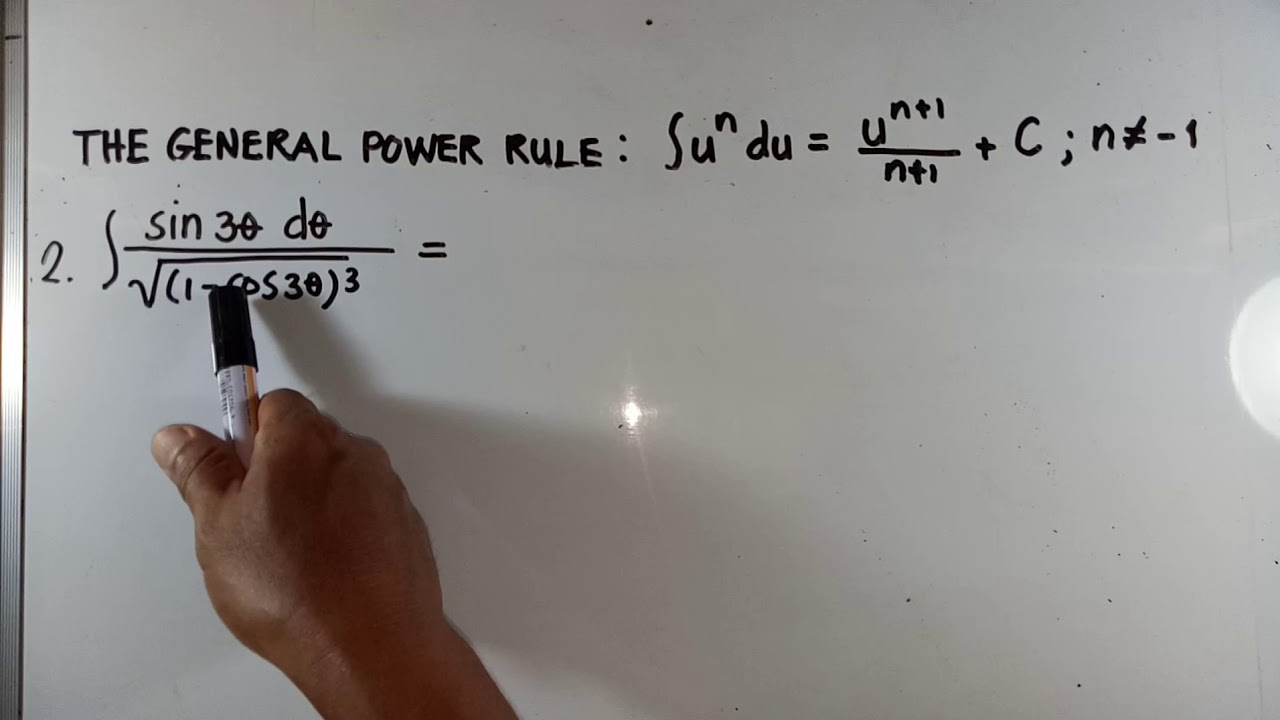 THE GENERAL POWER RULE: ∫uⁿ du = uⁿ⁺¹/n+1 + C ; n ≠ -1
2. ∫ sin 3θ dθ / √(1-cos3θ)³ =